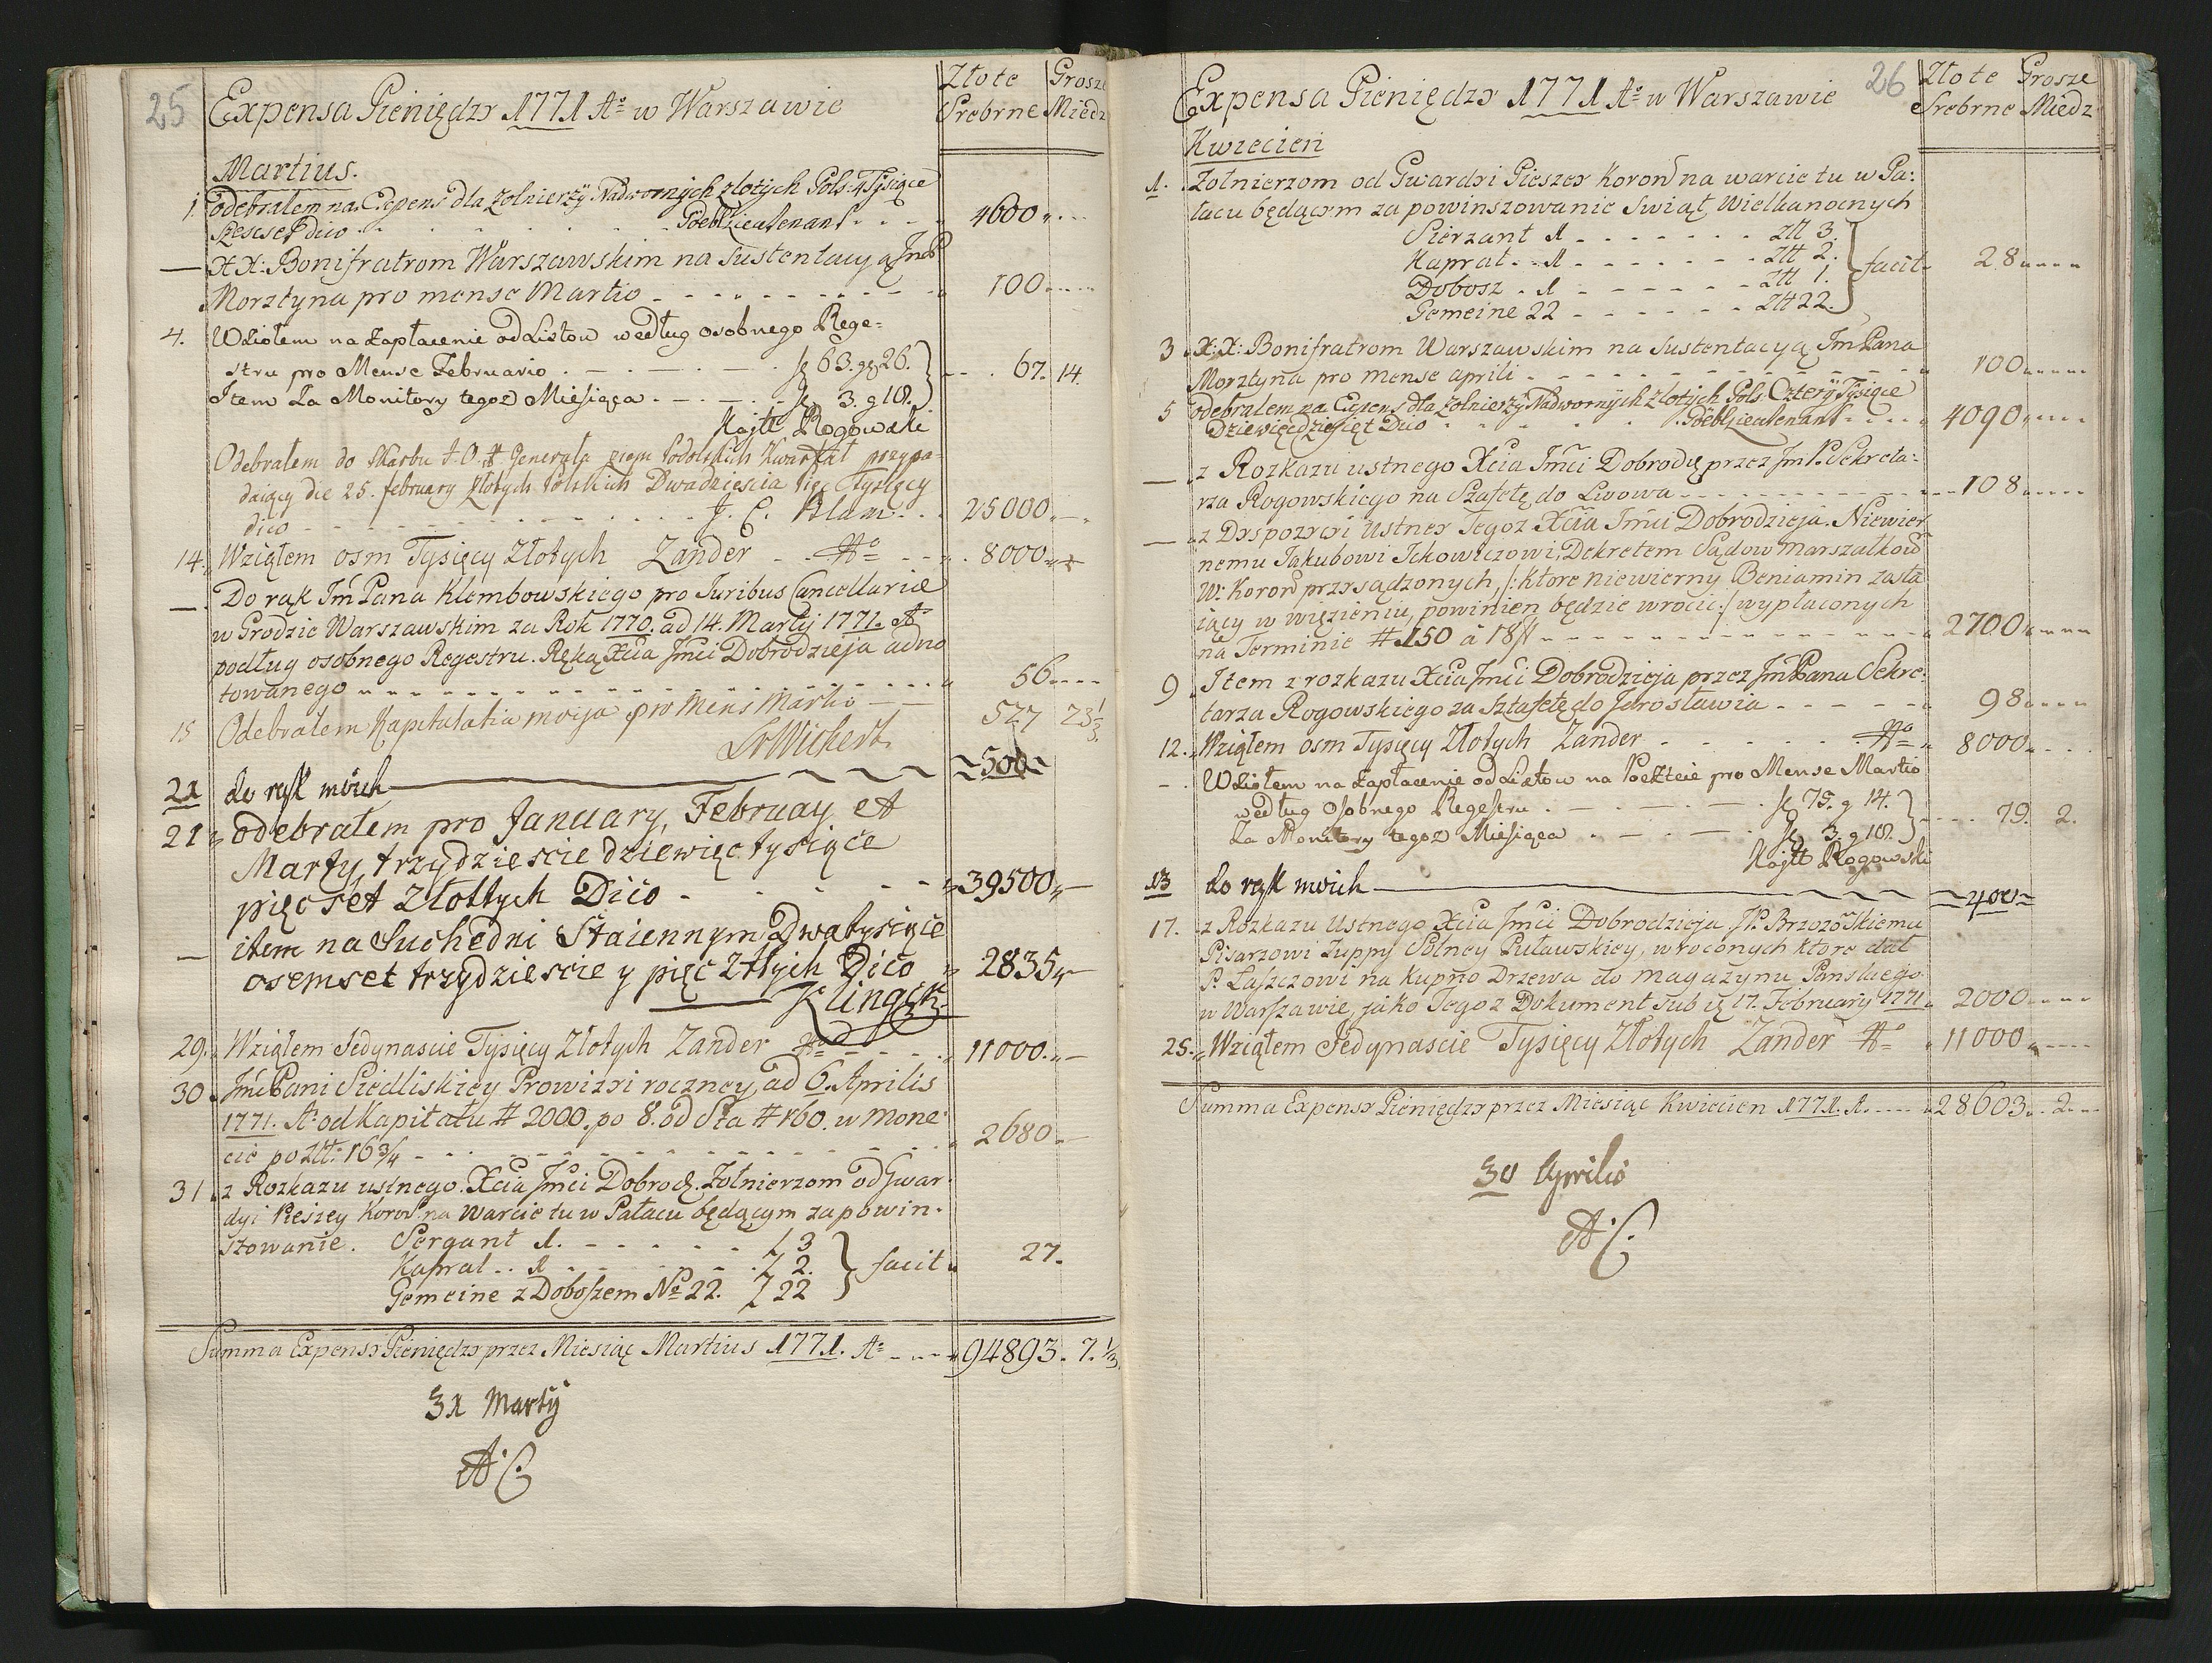 25 Expensa Pieniędzy 1771 Ao w Warszawie
Złote Grosze
Srebrne Miedz
Martius.
1. Odebrałem na Expens dla Zołnierzÿ Nadwornÿch złotÿch Pols: 4 Tÿsiące
szescset dico 4600
XX: Bonifratrom Warszawskim na Sustentacyą JmP
Morztyna pro mense Martio 100
4. Wziołem na zapłacenie od Listow według osobnego Rege=
stru pro Mense Februario . f 63. gr 26.
Item Za Monitory tegoz Miesiąca f 3. g 18. 67. 14.
Kajtt Rogowski
Odebrałem do Skarbu J. O. X. Generała ziem Podolskich Kwartał przypa-
daiący die 25. february złotych Polskich Dwadziescia pięc tysięcy
dico J. C. Blam 25000
14. Wziąłem osm Tysięcy Złotych Zander Ao 8000
Do rąk Jm Pana Klembowskiego pro Juribus Cancellariæ
w Grodzie Warszawskim za Rok 1770. ad 14. Martij 1771. Ao
podług osobnego Regestru. Ręką Xcia Jmci Dobrodzieja adno
towanego 56
15 Odebrałem Kapitulatia moija pro Mens Martio 527 23⅓
Wichert
21 do rąk moich 500
21 odebrałem pro January, February et
Marty, trzydziescie dziewięc tysiące
pięc set Złottych Dico - 39500
item na Suchedni Staiennym dwa tysiące
osemset trzydziescie y pięc Złłych Dico 2835
Klingek
29. Wziąłem Jedynascie Tysięcy Złotych Zander Ao 11000
30. JmcPani Siedliskiey Prowizyi roczney, ad 6. Aprilis
1771. Ao od Kapitału # 2000. po 8. od Sta # 160. w mone
cie po Złł. 16 3/4 2680
31. z Rozkazu ustnego. Xcia Jmci Dobrodz. Zołnierzom od Gwar
dyi Pieszey Koron na Warcie tu w Pałacu będącym za powin-
szowanie. Sergant 1. Z 3
Kapral 1 Z 2. facit 27.
Gemeine z Doboszem No 22. Z 22
Summa Expensy Pieniędzy przez Miesiąc Martius 1771. Ao 94893. 7. ⅓
31 Martÿ
AC
Expensa Pieniędzy 1771 Ao w Warszawie 26
Złote Grosze
Srebrne Miedz
Kwiecien
1. Zołnierzom od Gwardyi Pieszey Koron na warcie tu w Pa:
łacu będącym za powinszowanie Swiąt, Wielkanocnych
Sierzant 1 Złł 3.
Kapral 1 Złł 2. facit 28
Dobosz 1 Złł 1.
Gemeine 22 Złł 22.
3. X: X: Bonifratrom Warszawskim na Sustentacyą Jm Pana
Morztyna pro mense aprili 100
5 odebrałem na Expens dla Zołnierzÿ Nadwornÿch złotÿch Pols. Czterÿ Tÿsiące
Dziewięcdziesięt Dico 4090
z Rozkazu ustnego Xcia Jmci Dobrodz przez Jm P. Sekreta:
rza Rogowskiego na Sztafetę do Lwowa 108
z Dyspozycyi Ustney Tegoz Xcia Jmci Dobrodzieja. Niewier
nemu Jakubowi Ickowiczowi, Dekretem Sądow Marszałkow
W: Koron przysądzonych, /: ktore niewierny Beniamin zasta
iący w więzieniu, powinien będzie wrocic :/ wypłaconych
na Terminie # 150 â 18 2700
9. Item z rozkazu Xcia Jmci Dobrodzieja przez Jm Pana Sekre:
tarza Rogowskiego za Sztafetę do Jarosławia 98
12. Wziąłem osm Tysięcy Złotych Zander Ao 8000
Wziołem na zapłacenie od Listow na Poczcie pro Mense Martio
według Osobnego Regestru f 75. g 14.
Za Monitory tegoz Miesiąca f 3. g 18. 79. 2.
Kajtt Rogowski
13 do rąk moich 400
17. z Rozkazu Ustnego Xcia Jmci Dobrodzieja JP. Brzozoskiemu
Pisarzowi Zuppy Solney Puławskiey, wroconych ktore dał
P. Łaszczowi na kupno Drzewa do magazynu Panskiego
w Warszawie, jako Tegoz Dokument sub 17. February 1771 2000
25. Wziąłem Jedynascie Tysięcy Złotych Zander Ao 11000
Summa Expensy Pieniędzy przez Miesiąc Kwiecien 1771. A. 28603. 2.
30 Aprilis
AC